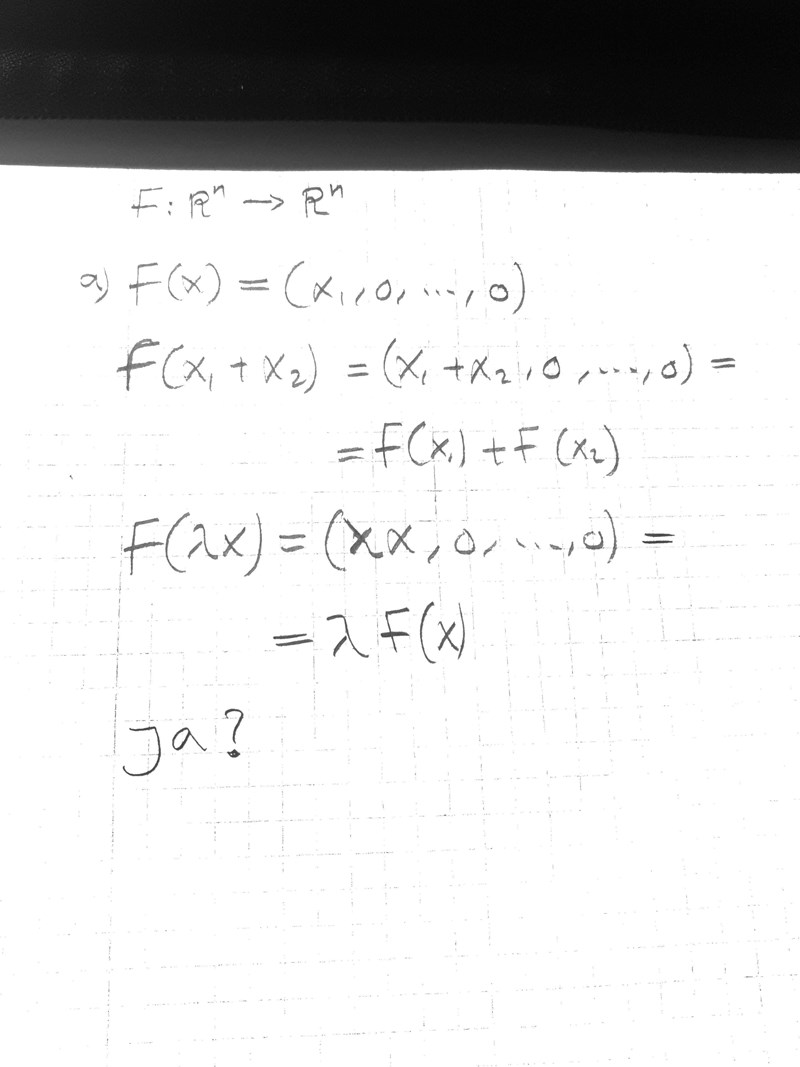 F: ℝⁿ → ℝⁿ
a) F(x) = (x₁, 0, ..., 0)
F(x₁ + x₂) = (x₁ + x₂, 0, ..., 0) =
= F(x₁) + F(x₂)
F(λx) = (λx, 0, ..., 0) =
= λF(x)
Ja?